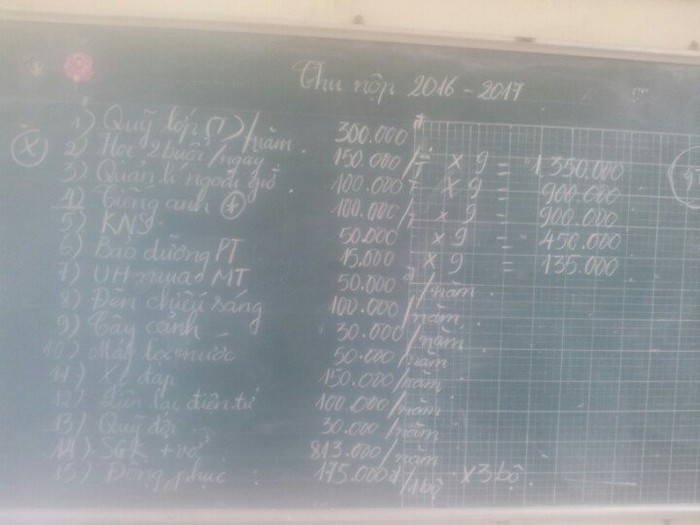 Thu nộp 2016 - 2017
1) Quỹ lớp (1)/năm. 300.000 đ
2) Học 2 buổi/ngày 150.000/T x 9 = 1.350.000
3) Quản lí ngoài giờ. 100.000 = x 9 = 900.000
4) Tiếng anh 4 100.000/T x 9 = 900.000
5) KNS 50.000 x 9 = 450.000
6) Bảo dưỡng PT 15.000 x 9 = 135.000
7) UH mua MT 50.000 đ/năm.
8) Đèn chiếu sáng 100.000/năm.
9) Cây cảnh 30.000/năm
10) Máy lọc nước 50.000/năm
11) Xe đạp 150.000/năm
12) liên lạc điện tử 100.000/năm
13) Quỹ đội 30.000/năm
14) SGK + vở 813.000/năm
15) Đồng phục : 175.000đ/1bộ x3 bộ.